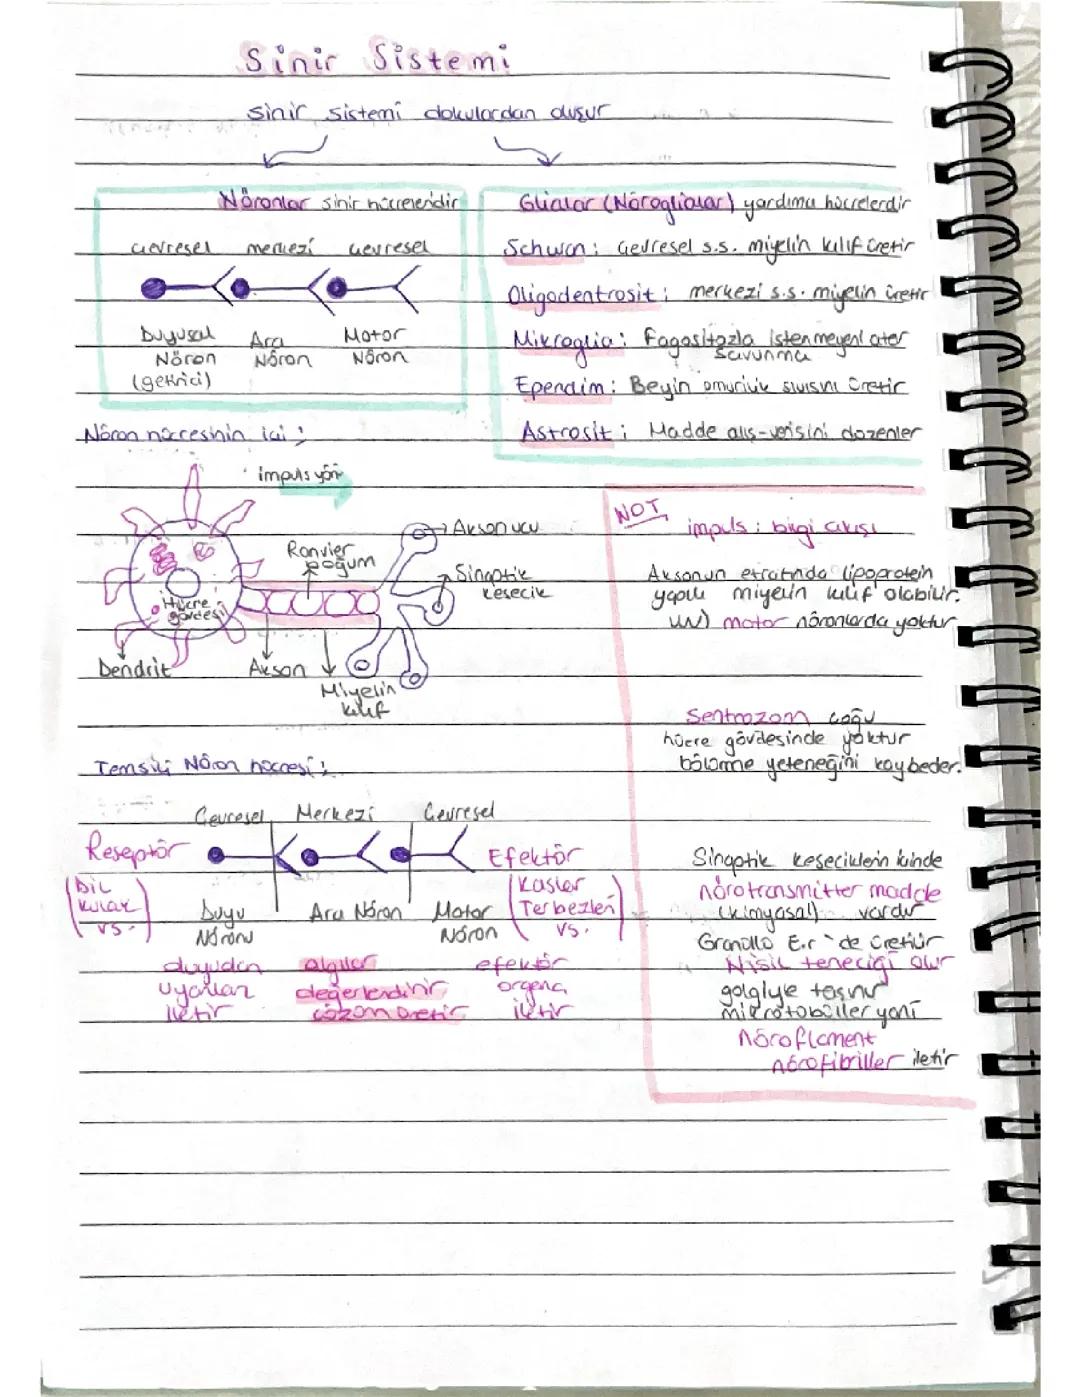 Sinir Sistemi
sinir sistemi dokulardan oluşur
Nöronlar sinir hücreleridir
çevresel merkezi çevresel
Duyusal Nöron (getirici)
Ara Nöron
Motor Nöron
Glialar (Nöroglialar) yardımcı hücrelerdir
Schwan: Çevresel s.s. miyelin kılıf üretir
Oligodentrosit: merkezi s.s. miyelin üretir
Mikroglia: Fagositozla istenmeyeni atar
savunma
Ependim: Beyin omurilik sıvısını üretir
Astrosit: Madde alış-verişini düzenler
Nöron hücresinin içi:
impuls yönü
Akson ucu
Ranvier boğum
Sinaptik kesecik
Hücre gövdesi
Dendrit
Akson
Miyelin kılıf
NOT
impuls: bilgi akışı
Aksonun etrafında lipoprotein
yapılı miyelin kılıf olabilir.
motor nöronlarda yoktur
Sentrozom çoğu
hücre gövdesinde yoktur
bölünme yeteneğini kaybeder.
Temsili Nöron hücresi:
Çevresel Merkezi Çevresel
Reseptör
Efektör
(Dil
kulak
vs.)
(Kaslar
Ter bezleri
vs.)
Duyu Nöronu
Ara Nöron
Motor Nöron
duyudan
uyarıları
iletir
algılar
değerlendirir
çözüm üretir
efektör
organa
iletir
Sinaptik keseciklerin içinde
nörotransmitter madde
(kimyasal) vardır
Granüllü E.r'de üretilir
Nisil taneciği olur
golgiyle taşınır
mikrotobüller yani
nöroflament
nörofibriller iletir